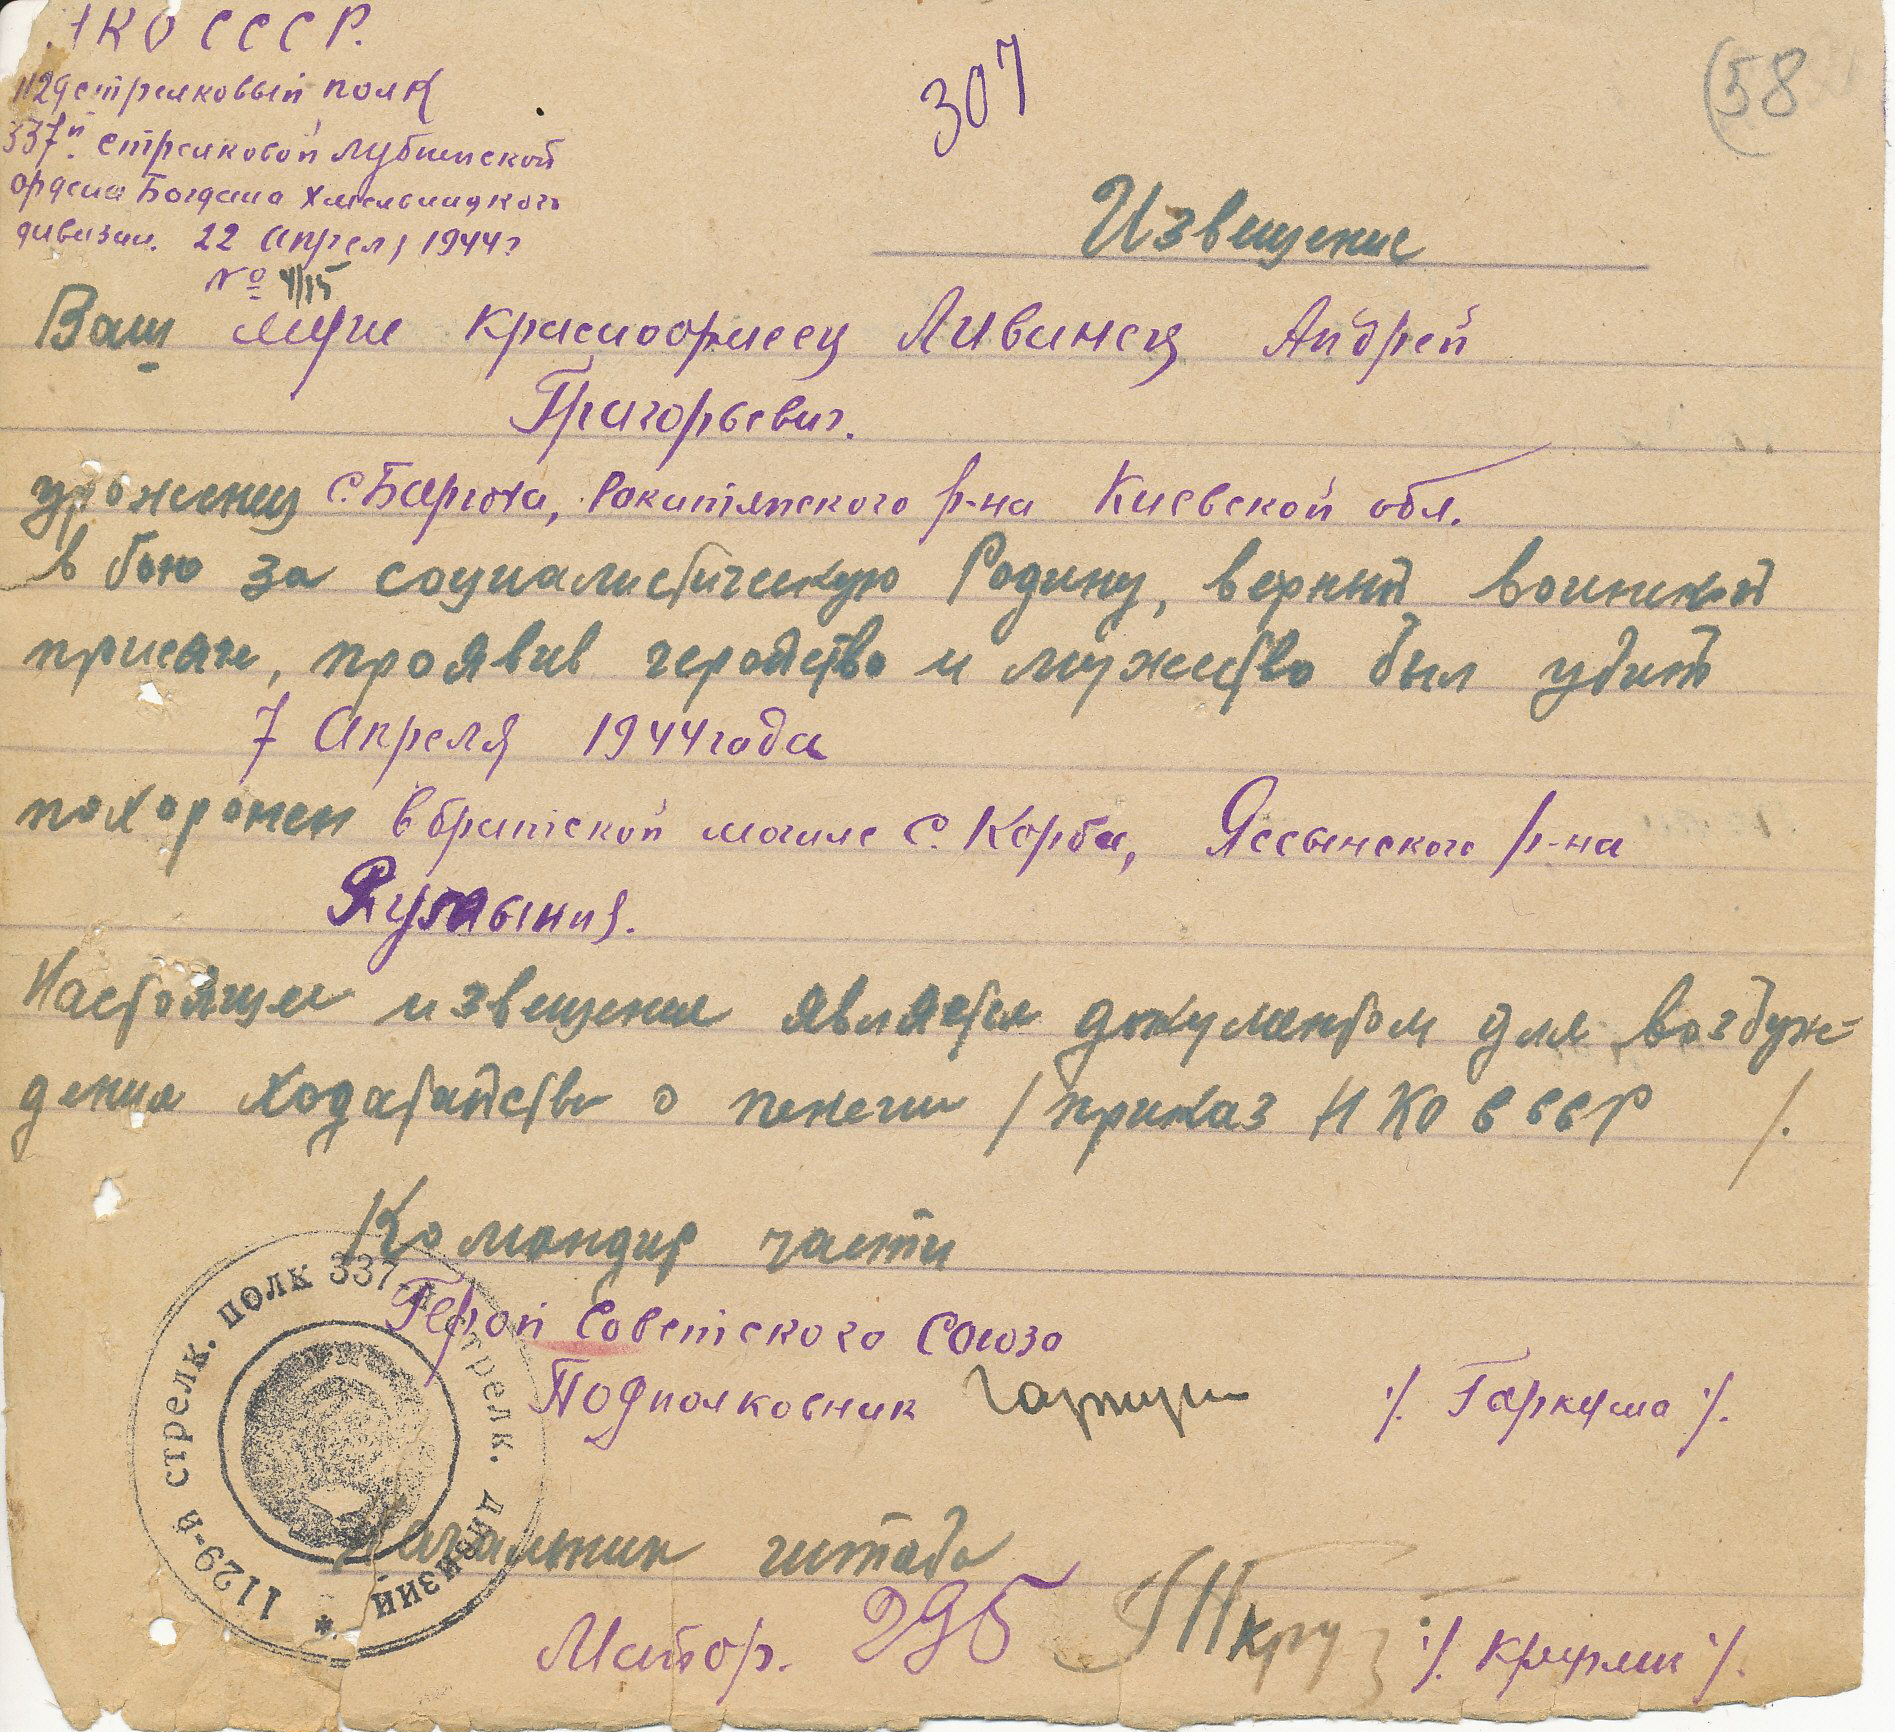 НКО СССР.
1129 стрелковый полк
337й стрелковой Лубненской
ордена Богдана Хмельницкого
дивизии. 22 апреля 1944г
№ 4/15
307
58
Извещение
Ваш муж красноармеец Ливинец Андрей
Григорьевич.
уроженец с. Бар Рокитянского р-на Киевской обл.
в бою за социалистическую Родину, верный воинской
присяге, проявив геройство и мужество был убит
7 Апреля 1944 года
похоронен в братской могиле с. Корби, Ясского р-на
Румыния.
Настоящее извещение является документом для возбуж-
дения ходатайства о пенсии /приказ НКО СССР /.
Командир части
Герой Советского Союза
Подполковник /. Гаркуша /.
Начальник штаба
Майор. 295 /. /.
1129-й стрелк. полк 337-й стрелк. дивизии *